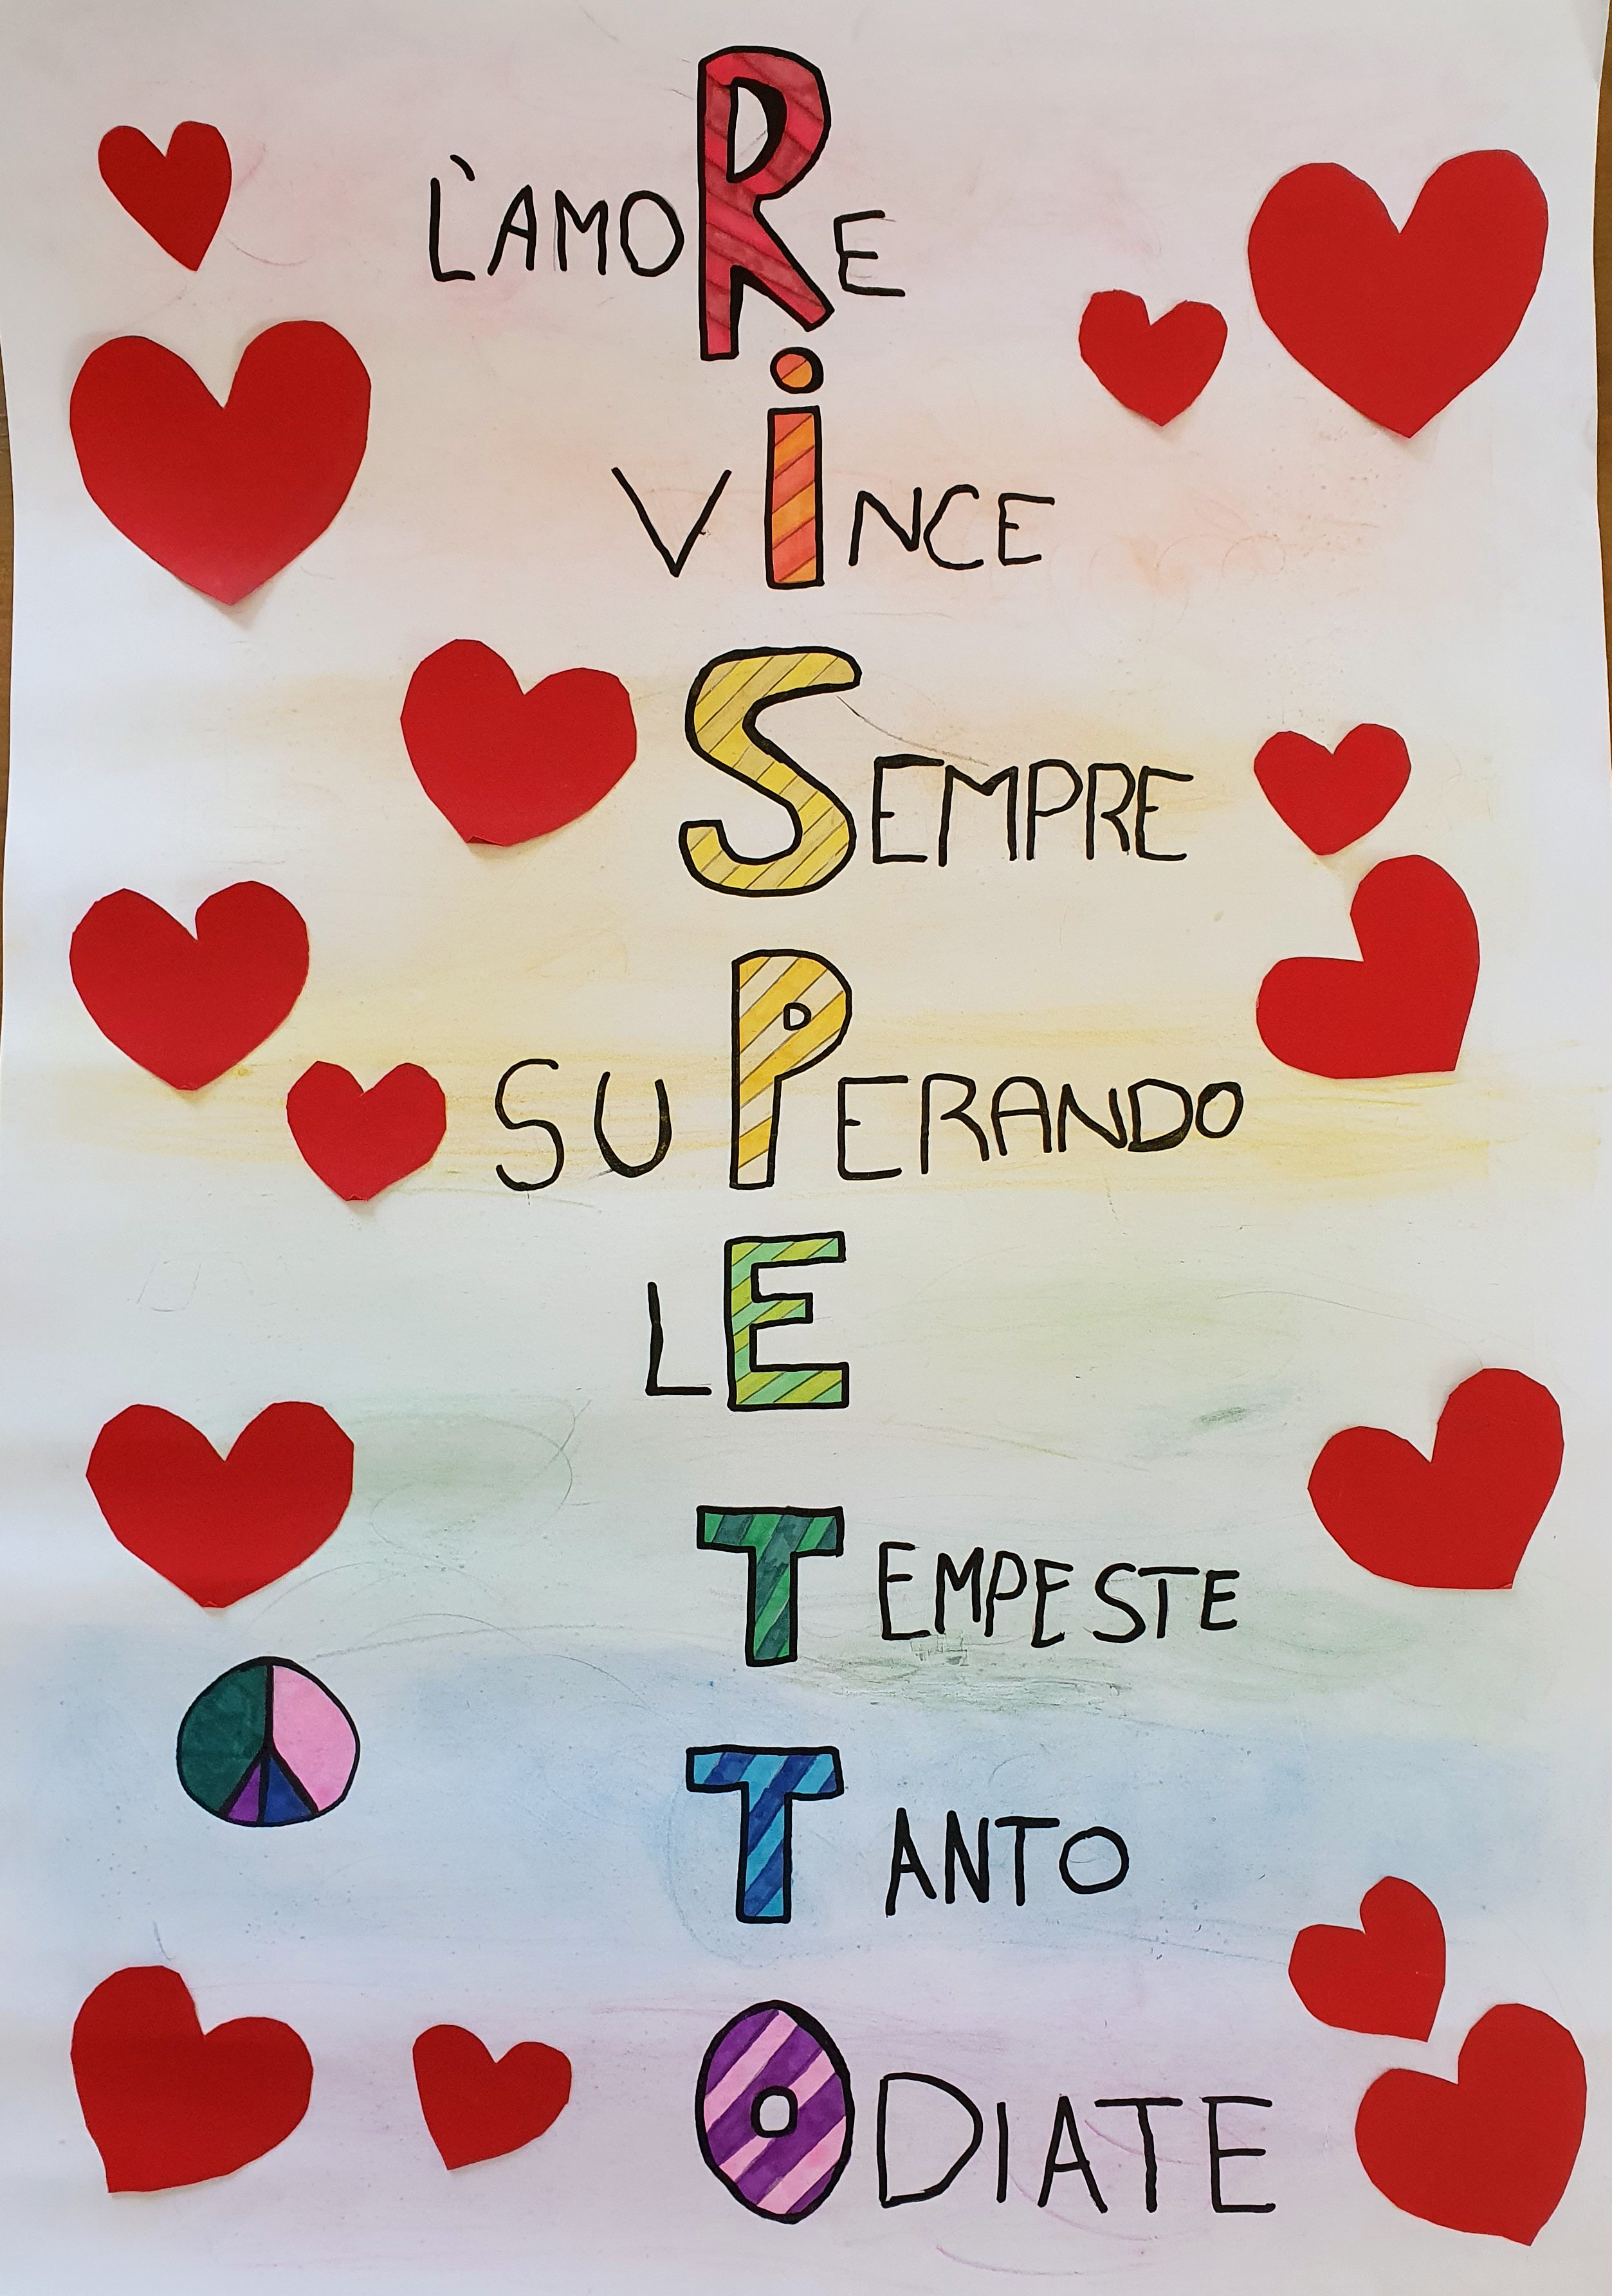 L'AMORE
ViNCE
SEMPRE
SUPERANDO
LE
TEMPESTE
TANTO
ODIATE